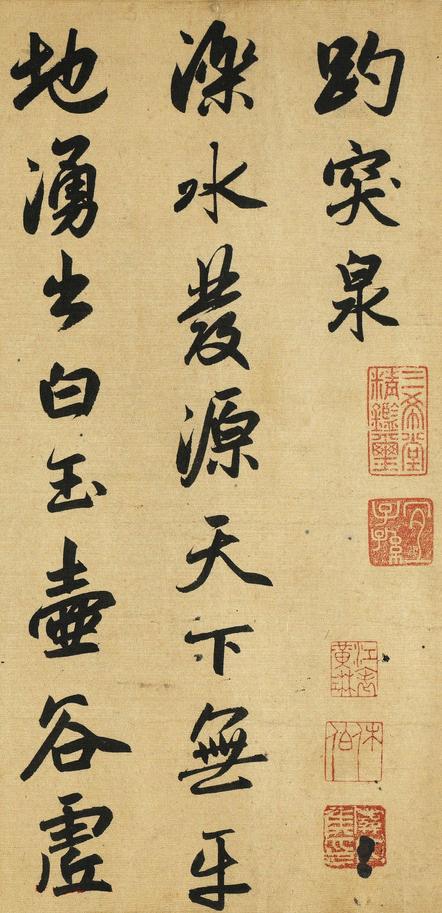 趵突泉
三希堂
精鑑璽
宜子孫
江表
黃琳
休伯
濼水發源天下無平
地湧出白玉壺谷虛